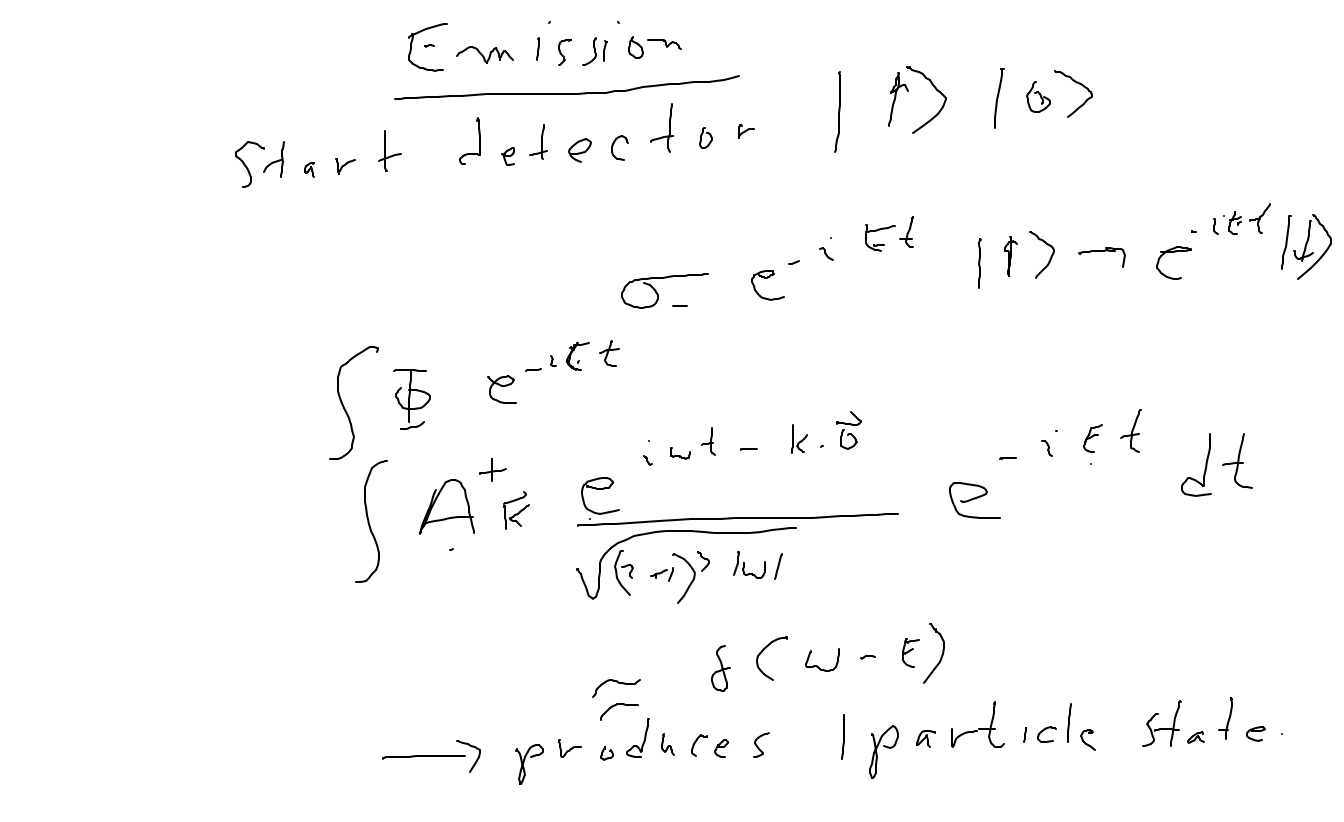 Emission
Start detector |↑⟩ |0⟩
σ₋ e^{-iEt} |↑⟩ → e^{-iEt} |↓⟩
∫ Φ e^{-iEt}
∫ A^+_{\vec{k}} \frac{e^{iωt - k·\vec{0}}}{\sqrt{(2π)^3 |ω|}} e^{-iEt} dt
≈ δ(ω - E)
→ produces 1 particle state.